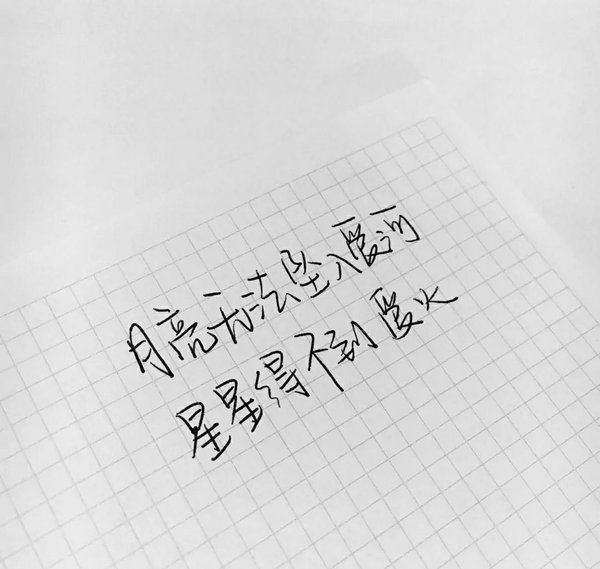 月亮无法坠入爱河
星星得不到爱火